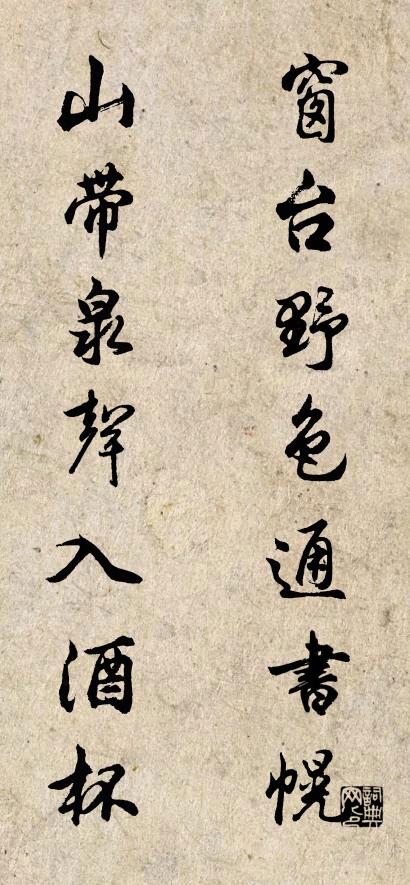 窗台野色通書幌
山带泉聲入酒杯
詞典網